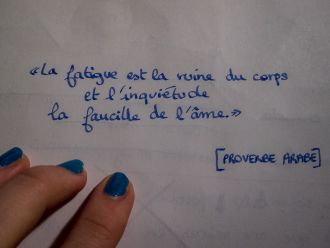 «La fatigue est la ruine du corps
et l'inquiétude
la faucille de l'âme.»
[PROVERBE ARABE]